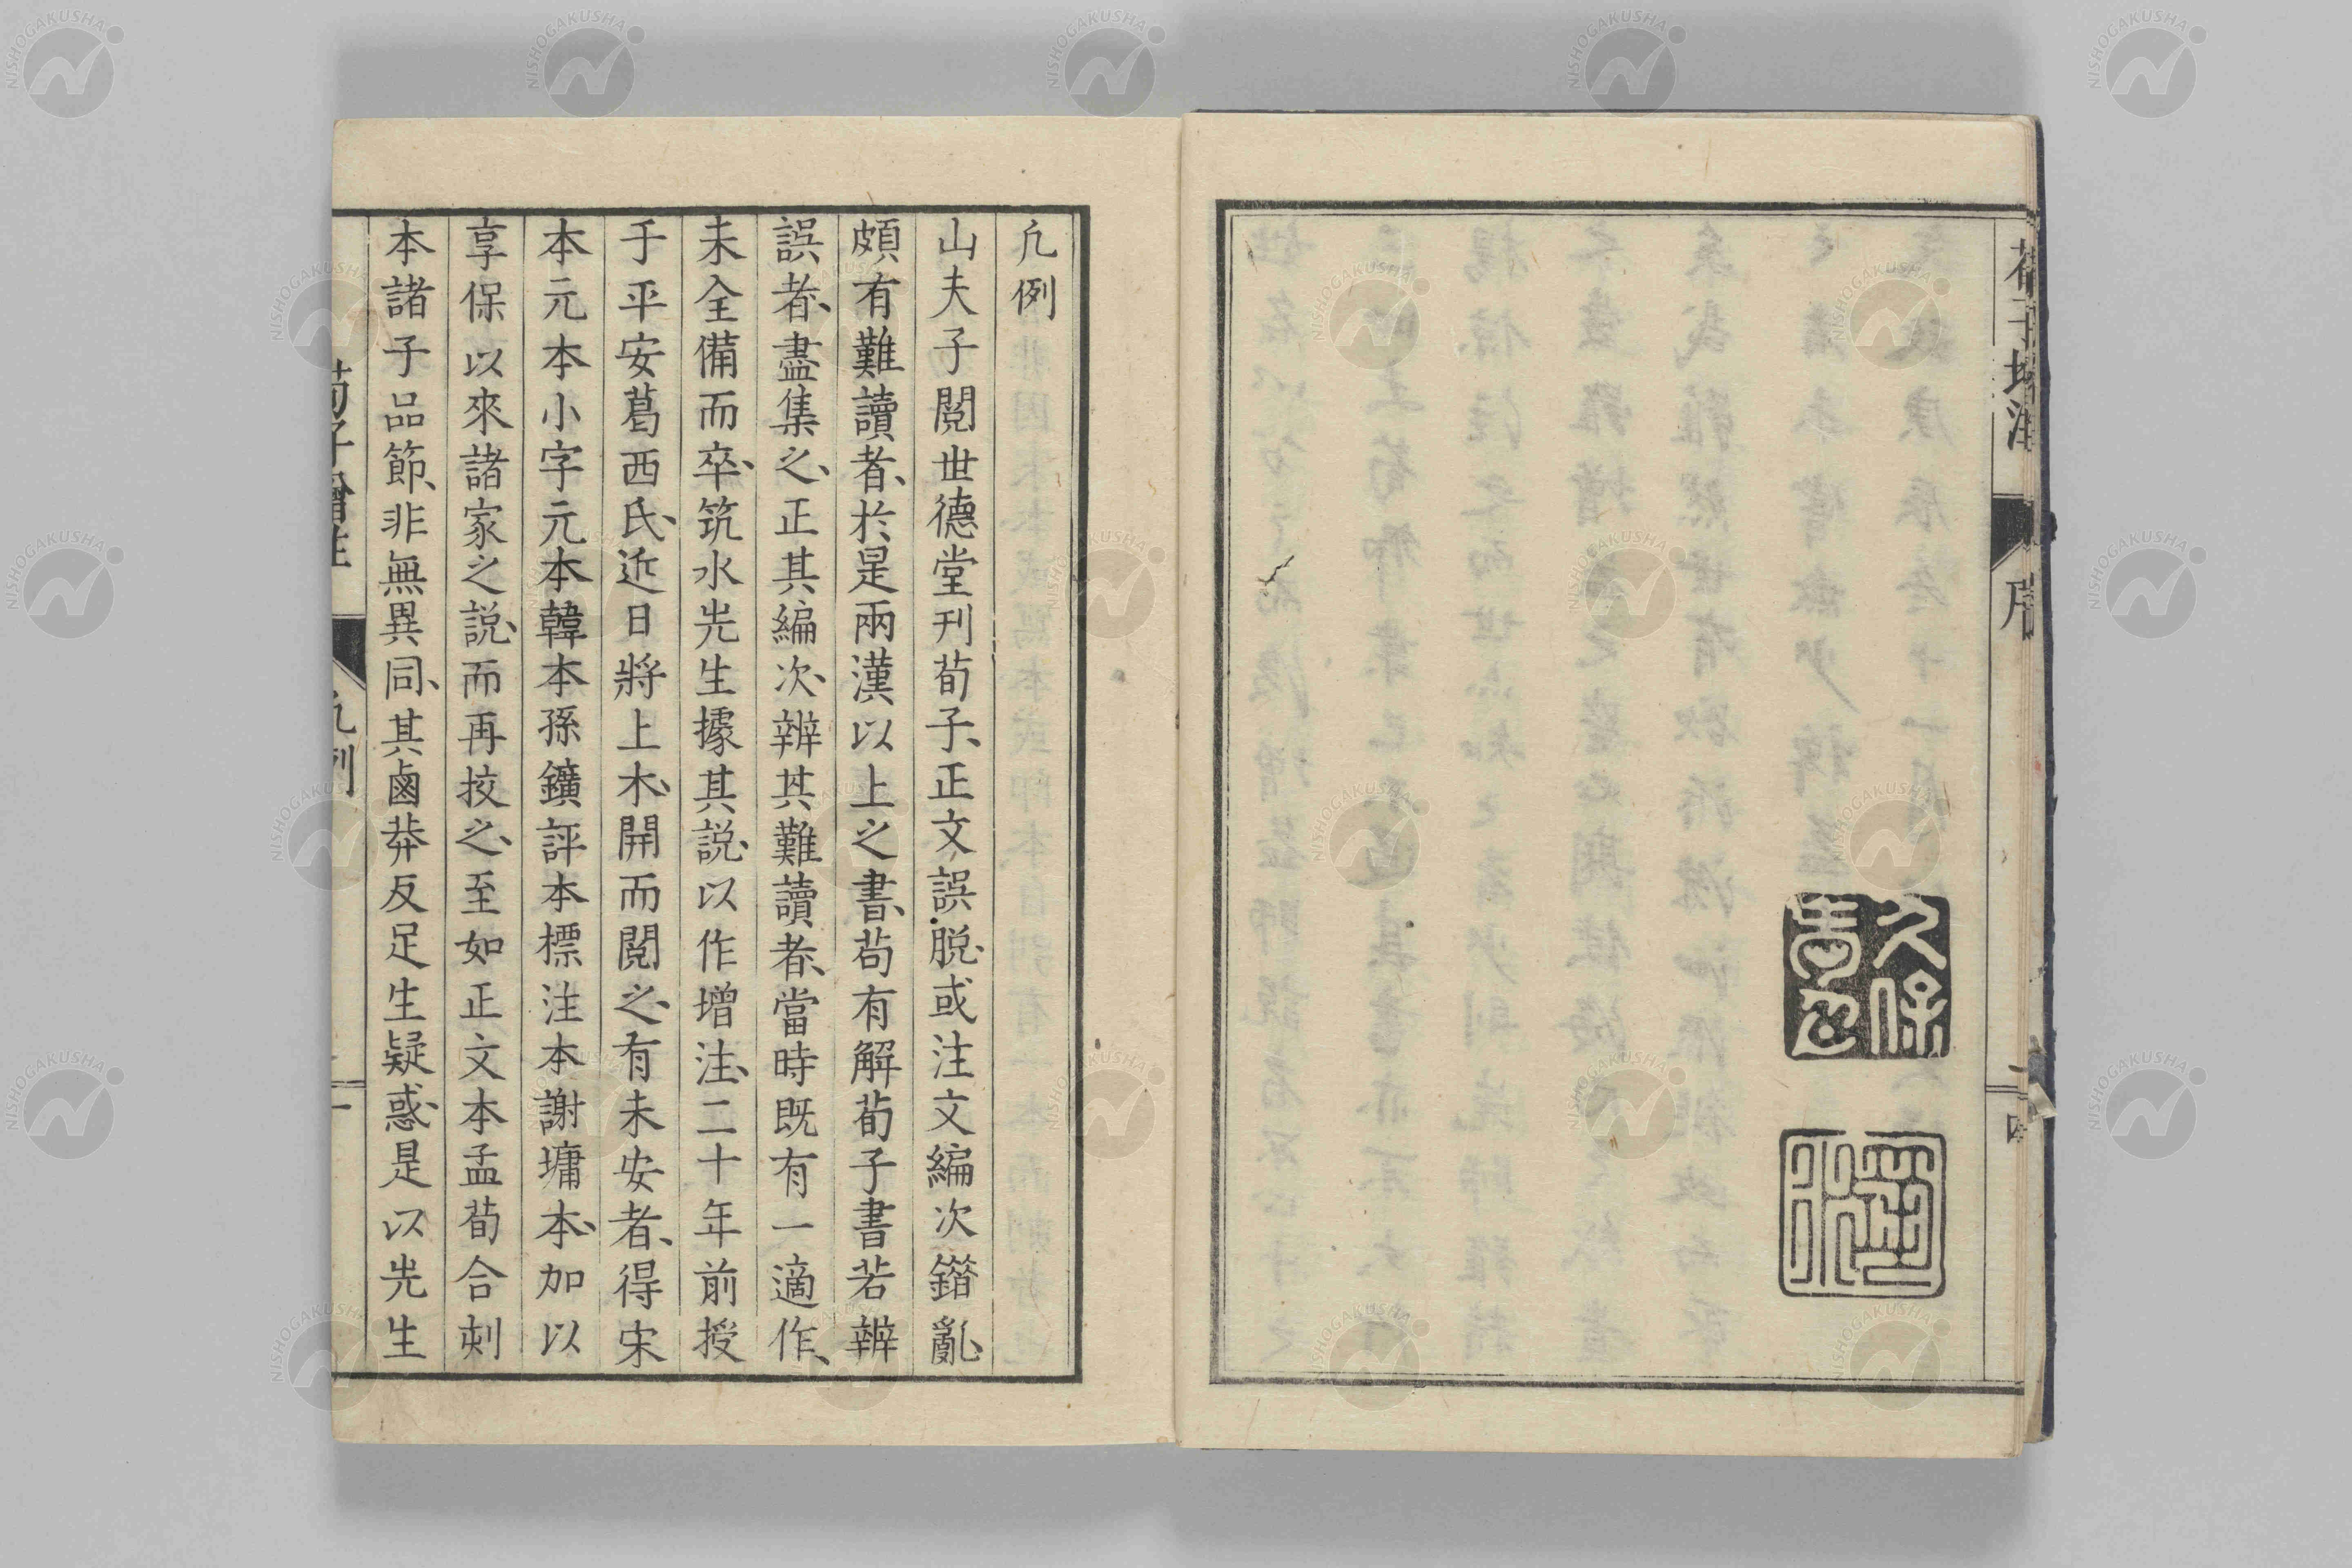 荀子增注
序
四
久保
愛印
筑水
凢例
山夫子閲世德堂刊荀子、正文誤脱、或注文編次錯亂、
頗有難讀者、於是兩漢以上之書、苟有解荀子書若辨
誤者、盡集之、正其編次、辨其難讀者、當時既有一適作、
未全備而卒、筑水先生據其説、以作增注、二十年前授
于平安葛西氏、近日將上木、開而閲之、有未安者、得宋
本元本小字元本韓本孫鑛評本標注本謝墉本、加以
享保以來諸家之説、而再挍之、至如正文本孟荀合刻
本諸子品節、非無異同、其鹵莽反足生疑惑、是以先生
荀子增注
凢例
一
NISHOGAKUSHA